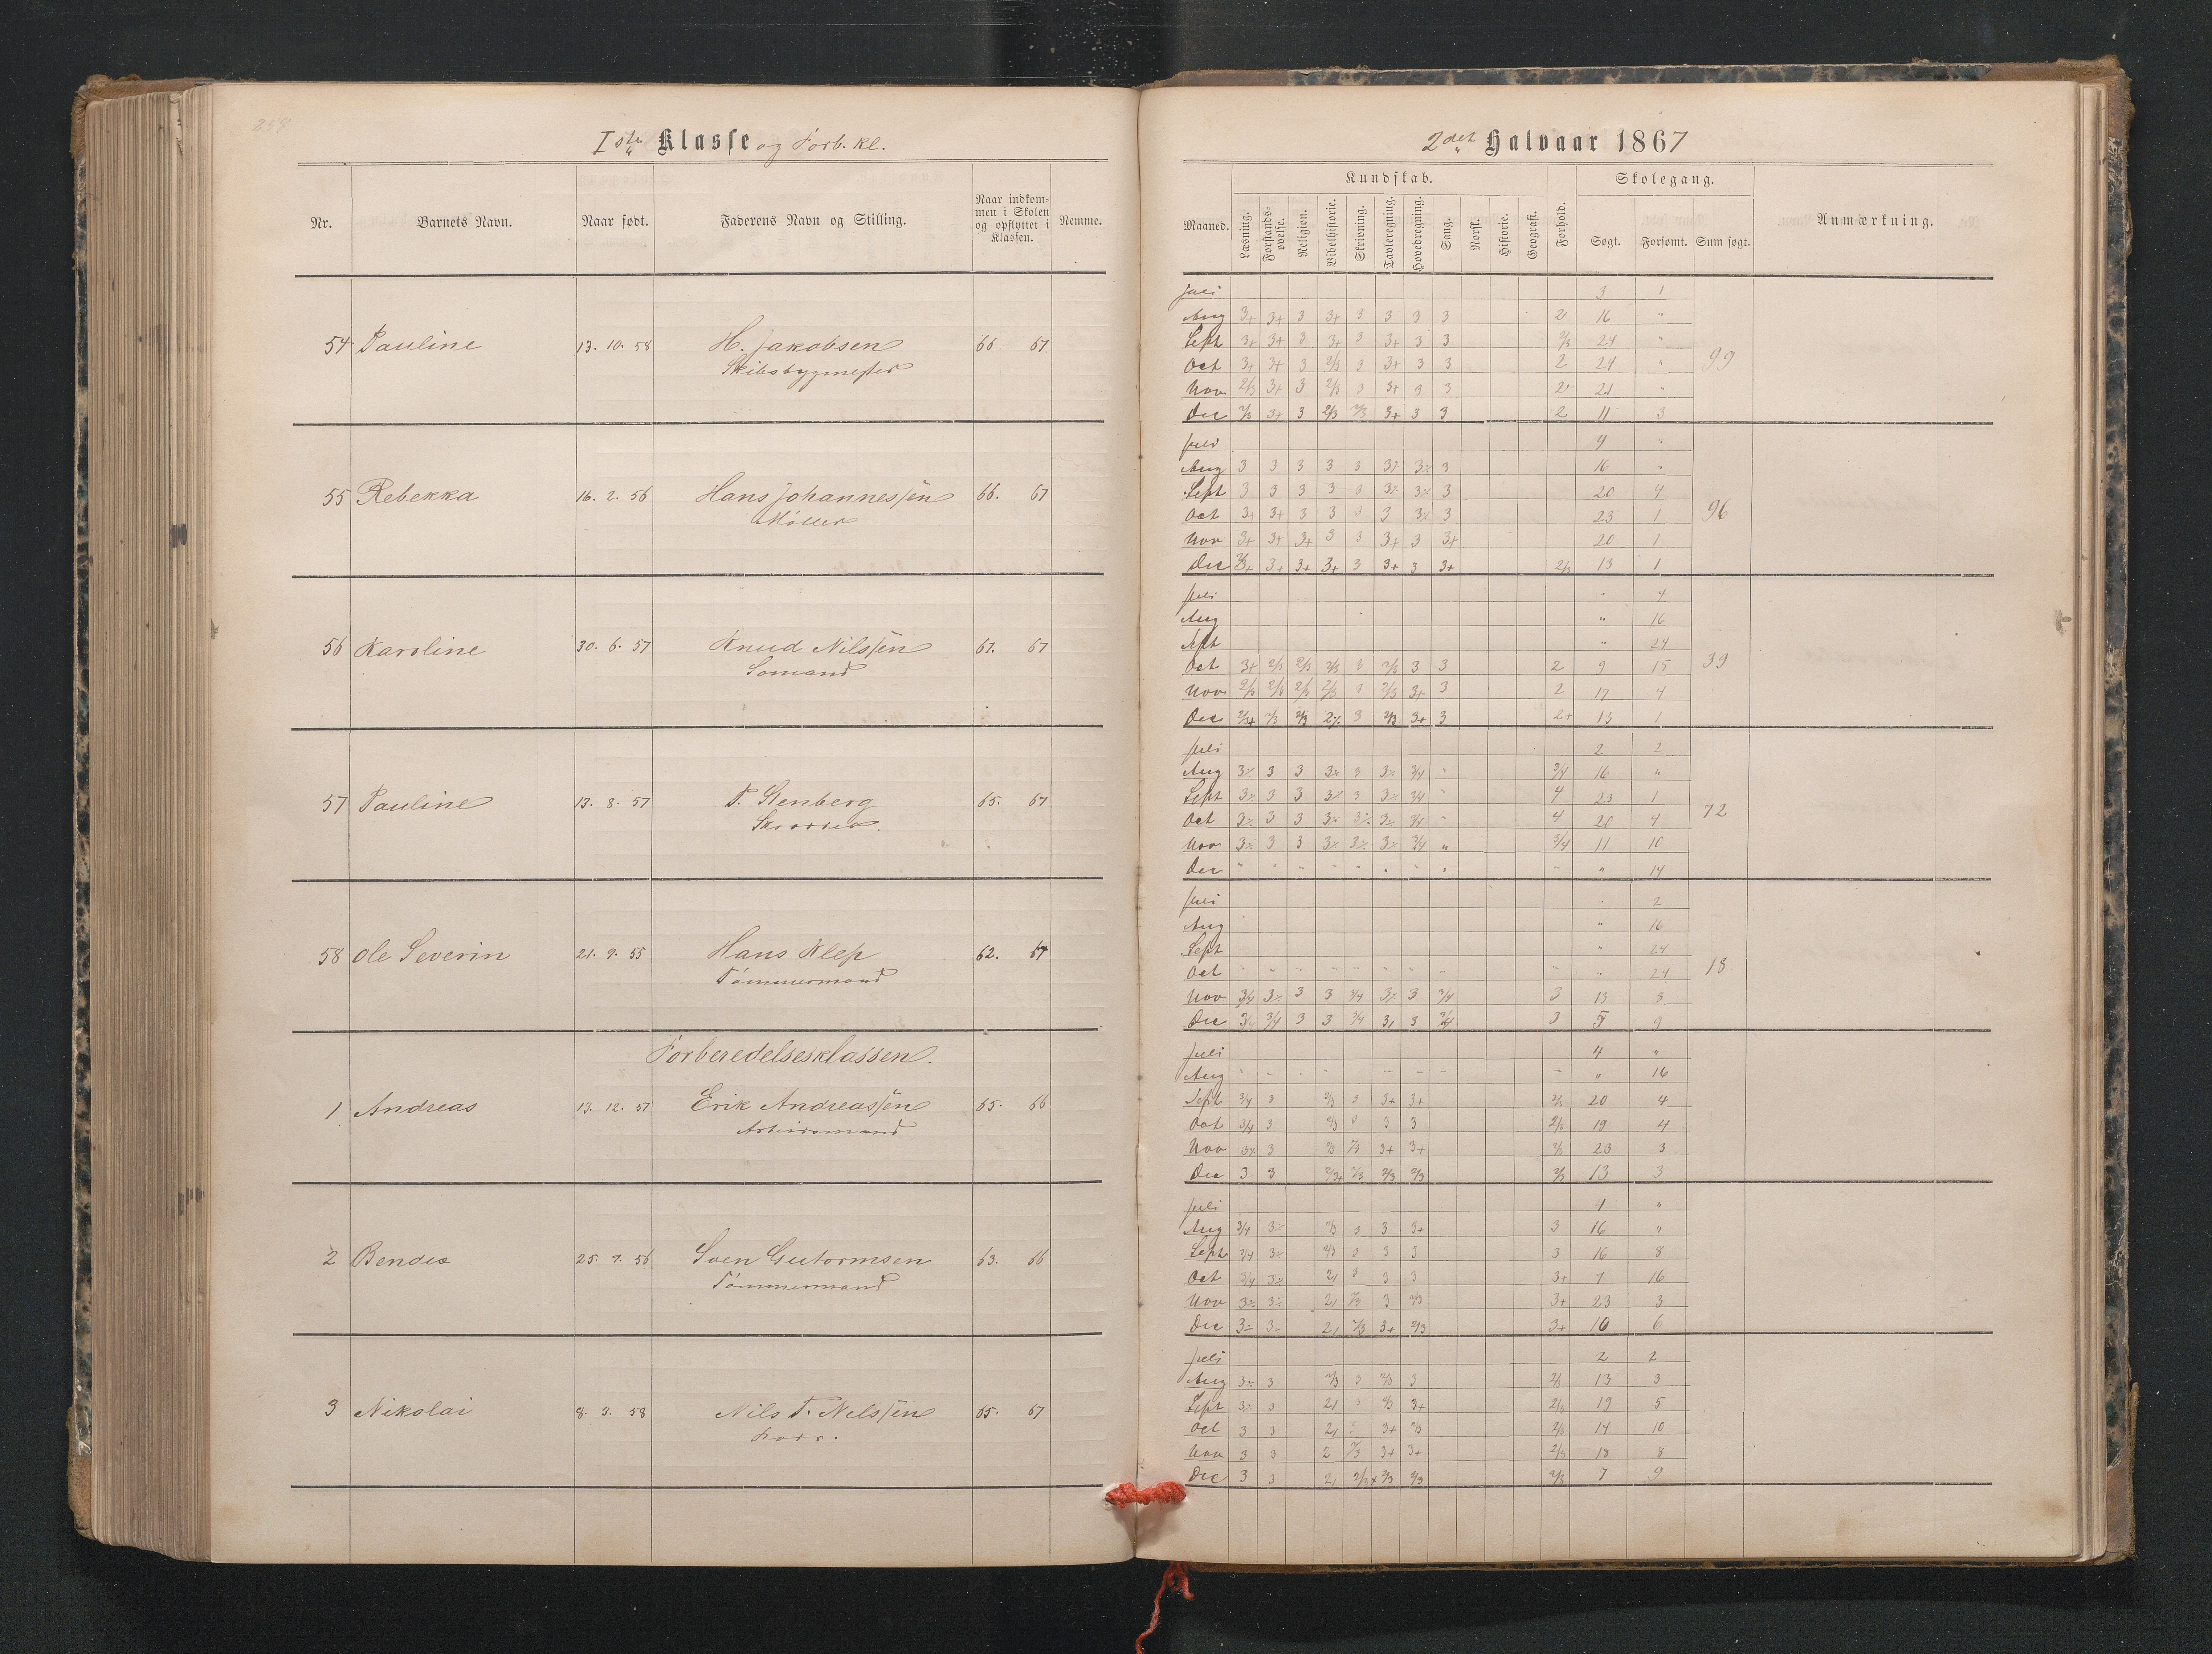 258
Iste Klasse og Forb. Kl.
Nr. Barnets Navn. Naar født. Faderens Navn og Stilling. Naar indkommen i Skolen og opflyttet i Klassen. Nemme.
54 Pauline 13. 10. 58 H. Jakobsen 66 67
Skibsbygmester
55 Rebekka 16. 2. 56 Hans Johannessen 66. 67
Møller
56 Karoline 30. 6. 57 Knud Nilssen 67. 67
Sømand
57 Pauline 13. 8. 57 T. Stenberg 65. 67
Skrædder.
58 Ole Severin 21. 9. 55 Hans Klep 62. 67
Tømmermand
Forberedelsesklassen.
1 Andreas 13. 12. 57 Erik Andreassen 65. 66
Arbeidsmand
2 Bendix 25. 7. 56 Soen Gutormsen 63. 66
Tømmermand
3 Nikolai 8. 3. 58 Nils T. Nilssen 65. 67
2det Halvaar 1867
Kundskab. Skolegang.
Maaned. Læsning. Forstandsøvelse. Religion. Bibelhistorie. Skrivning. Tavleregning. Hovedregning. Sang. Norsk. Historie. Geografi. Forhold. Søgt. Forsømt. Sum søgt. Anmærkning.
Juli 3 1
Aug 3+ 3+ 3 3+ 3 3 3 3 2 16 "
Sept 3+ 3+ 3 3+ 3 3+ 3 3 2/3 24 "
Oct 3+ 3+ 3 2/3 3 3+ 3 3 2 24 " 99
Nov 2/3 3+ 3 2/3 3 3+ 3 3 2 21 "
Dec 2/3 3+ 3 2/3 2/3 3+ 3 3 2 11 3
Juli 4 "
Aug 3 3 3 3 3 3 16 "
Sept 3 3 3 3 3 3 20 4
Oct 3+ 3+ 3 3 3 3 3 23 1 96
Nov 3+ 3+ 3+ 3 3 3+ 3 3+ 20 1
Dec 3+ 3+ 3+ 3 3+ 3 3+ 2/3 13 1
Juli " 4
Aug " 16
Sept " 24
Oct 3+ 2/3 2/3 2/3 3 2/3 3 3 2 9 15 39
Nov 2/3 2/3 2/3 2/3 3 2/3 3+ 3 2 17 4
Dec 2/3+ 2/3 2/3 3 2/3 3+ 3 2+ 13 1
Juli 2 2
Aug 3 3 3 3/4 3/4 16 "
Sept 3 3 3 3/4 4 23 1
Oct 3 3 3/4 4 20 4 72
Nov 3 3 3/4 " 3/4 11 10
Dec " " " " " " " " " " 14
Juli " 2
Aug " 16
Sept " 24
Oct " " " " " " " " " " 24 18
Nov 3/4 3 3 3/4 3 3/4 3 13 8
Dec 3/4 3/4 3 3 3/4 3 3/4 3 5 9
Juli 4 "
Aug " " " " " " " " " 16
Sept 3/4 3 2/3 3 3+ 3+ 2/3 20 4
Oct 3/4 3 2/3 3 3 3 2/3 19 4
Nov 3 2/3 2/3 3+ 3+ 2/3 23 3
Dec 3 3 2/3+ 2/3 2/3 2/3 2/3 13 3
Juli 4 "
Aug 3/4 2/3 3 3 3+ 3 16 "
Sept 3/4 2/3 3 3 3 3 16 8
Oct 3/4 3 3 3 3+ 7 16
Nov 2/3 3 2/3 3+ 23 3
Dec 2/3 3+ 2/3 3+ 10 6
Juli 2 2
Aug 3 2/3 3 2/3 3 2/3 13 3
Sept 3 3 2/3 3+ 2/3 19 5
Oct 3 3 3+ 2/3 2/3 14 10
Nov 3 3 2 2/3 3+ 3+ 2/3 18 8
Dec 3 3 2/3+ 2/3 2/3 2/3 7 9